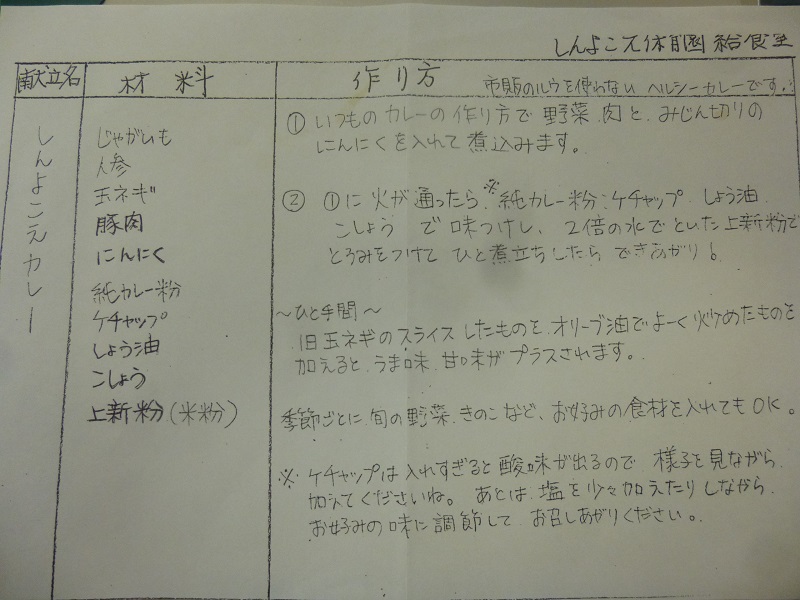 しんよこえ保育園 給食室
献立名 材料 作り方 市販のルウを使わない ヘルシーカレーです。
しんよこえカレー
じゃがいも
人参
玉ネギ
豚肉
にんにく
純カレー粉
ケチャップ
しょう油
こしょう
上新粉(米粉)
① いつものカレーの作り方で野菜、肉と、みじん切りの
にんにくを入れて煮込みます。
② ①に火が通ったら、※純カレー粉、ケチャップ、しょう油、
こしょう で味つけし、2倍の水でといた上新粉で
とろみをつけて ひと煮立ちしたら できあがり。
〜ひと手間〜
玉ネギのスライスしたものを、オリーブ油でよーく炒めたものを
加えると、うま味、甘味がプラスされます。
季節ごとに、旬の野菜、きのこなど、お好みの食材を入れてもOK。
※ ケチャップは入れすぎると酸味が出るので 様子を見ながら、
加えてくださいね。 あとは、塩を少々加えたりしながら、
お好みの味に調節して、お召しあがりください。